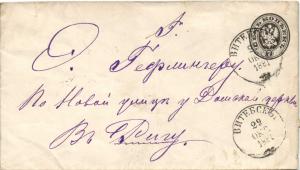 Г.
О. Гефлингеру.
По Новой улице у Домской церкви
Въ Ригу.
ВИТЕБСКЪ
29
ОКТ
ВИТЕБСКЪ
29
ОКТ